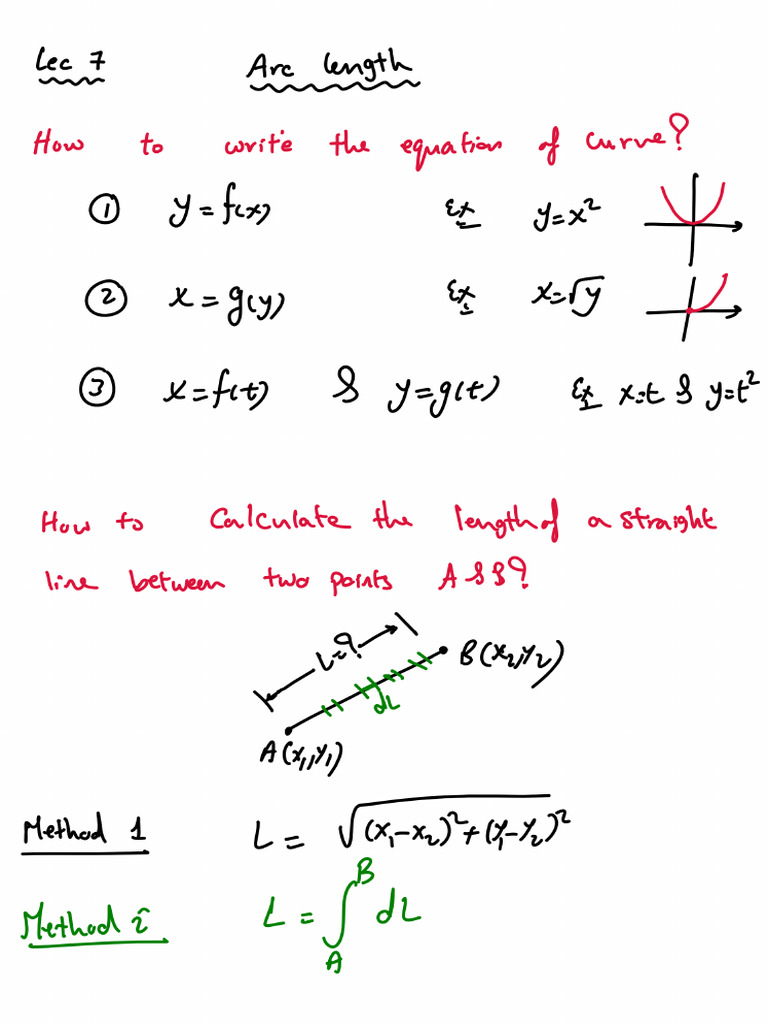 Lec 7 Arc length
How to write the equation of curve?
① y = f(x) Ex y = x²
② x = g(y) Ex x = √y
③ x = f(t) & y = g(t) Ex x = t & y = t²
How to Calculate the length of a straight
line between two points A & B?
L = ?
B(x₂, y₂)
dL
A(x₁, y₁)
Method 1 L = √(x₁ - x₂)² + (y₁ - y₂)²
Method 2 L = ∫_A^B dL